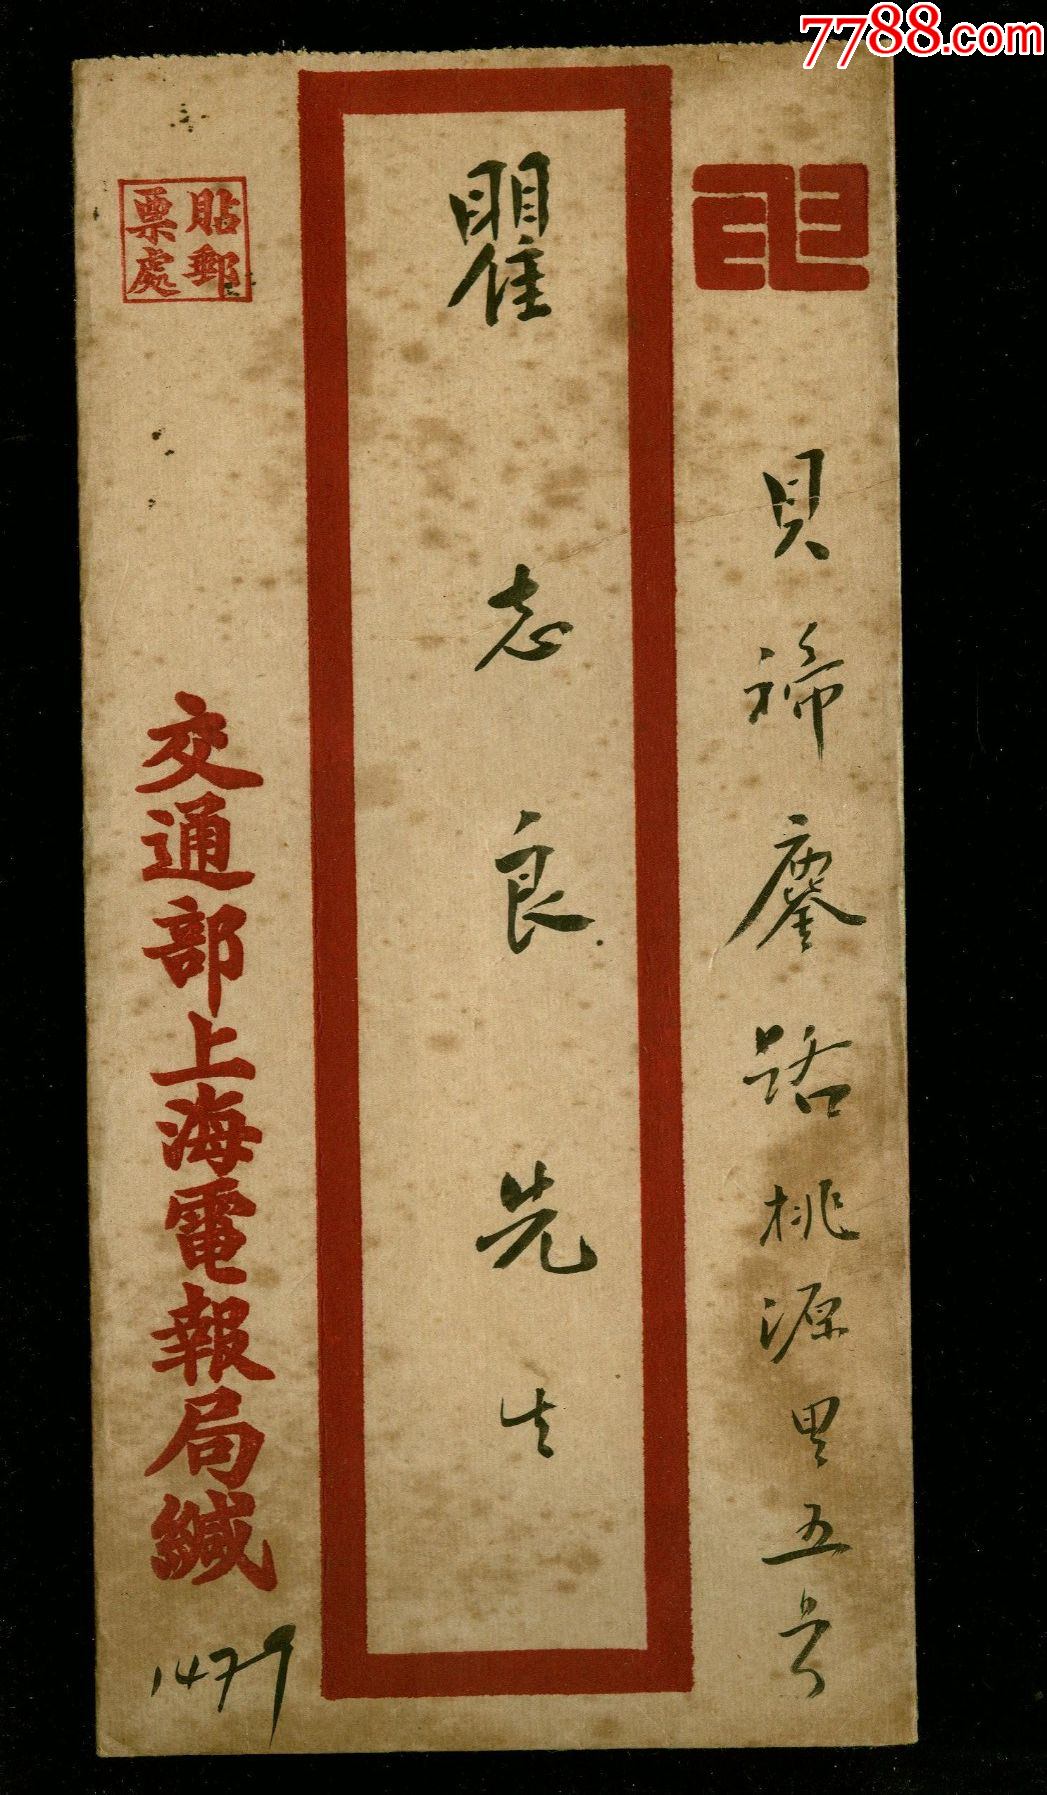 7788.com
貝禘鏖路桃源里五号
瞿志良先生
貼郵
票處
交通部上海電報局緘
1479